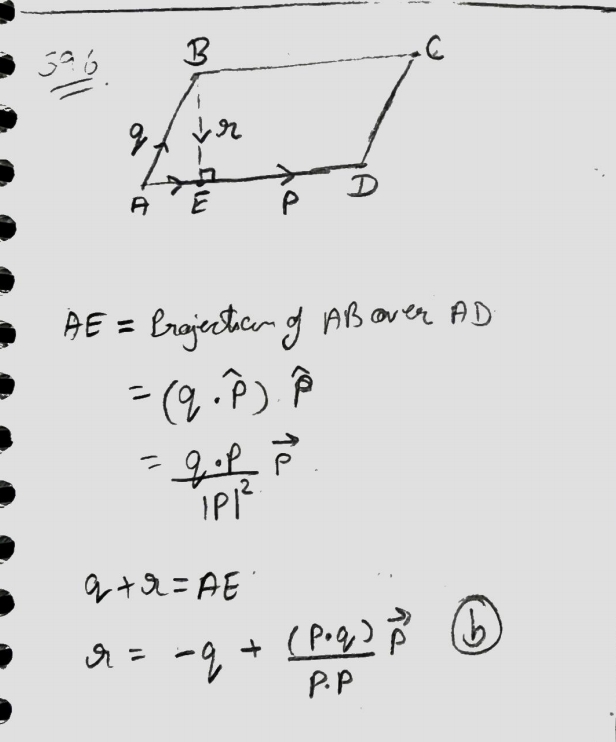 59.6
B
C
q
r
A
E
P
D
AE = Projection of AB over AD
= (q . P̂) P̂
= q.P / |P|² P⃗
q + r = AE
r = -q + (P.q) / P.P P⃗ (b)